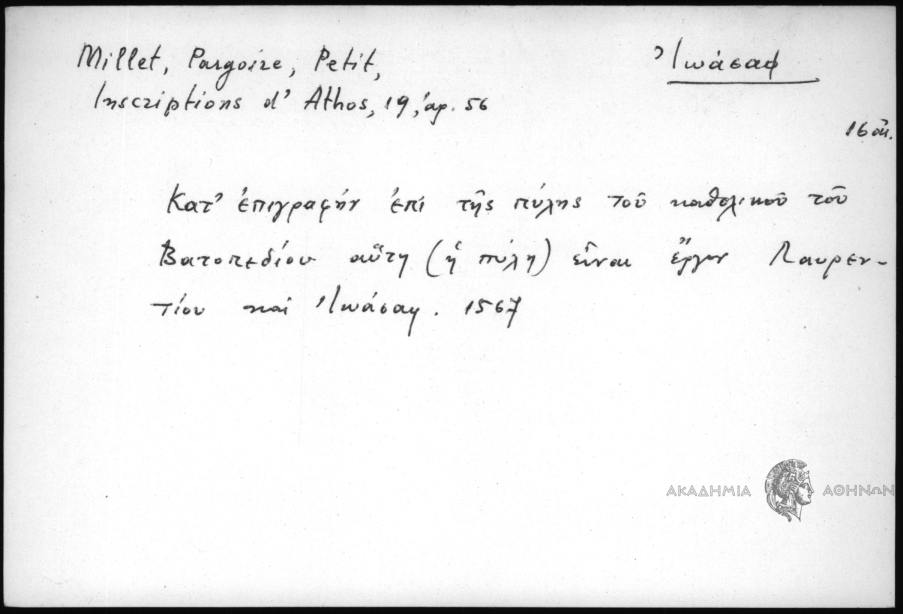 Millet, Pargoire, Petit,
Inscriptions d' Athos, 19, ἀρ. 56
Ἰωάσαφ
16 αἰ.
Κατ' ἐπιγραφήν ἐπί τῆς πύλης τοῦ καθολικοῦ τοῦ
Βατοπεδίου αὕτη (ἡ πύλη) εἶναι ἔργον Λαυρεν-
τίου καί Ἰωάσαφ. 1567
ΑΚΑΔΗΜΙΑ ΑΘΗΝΩΝ